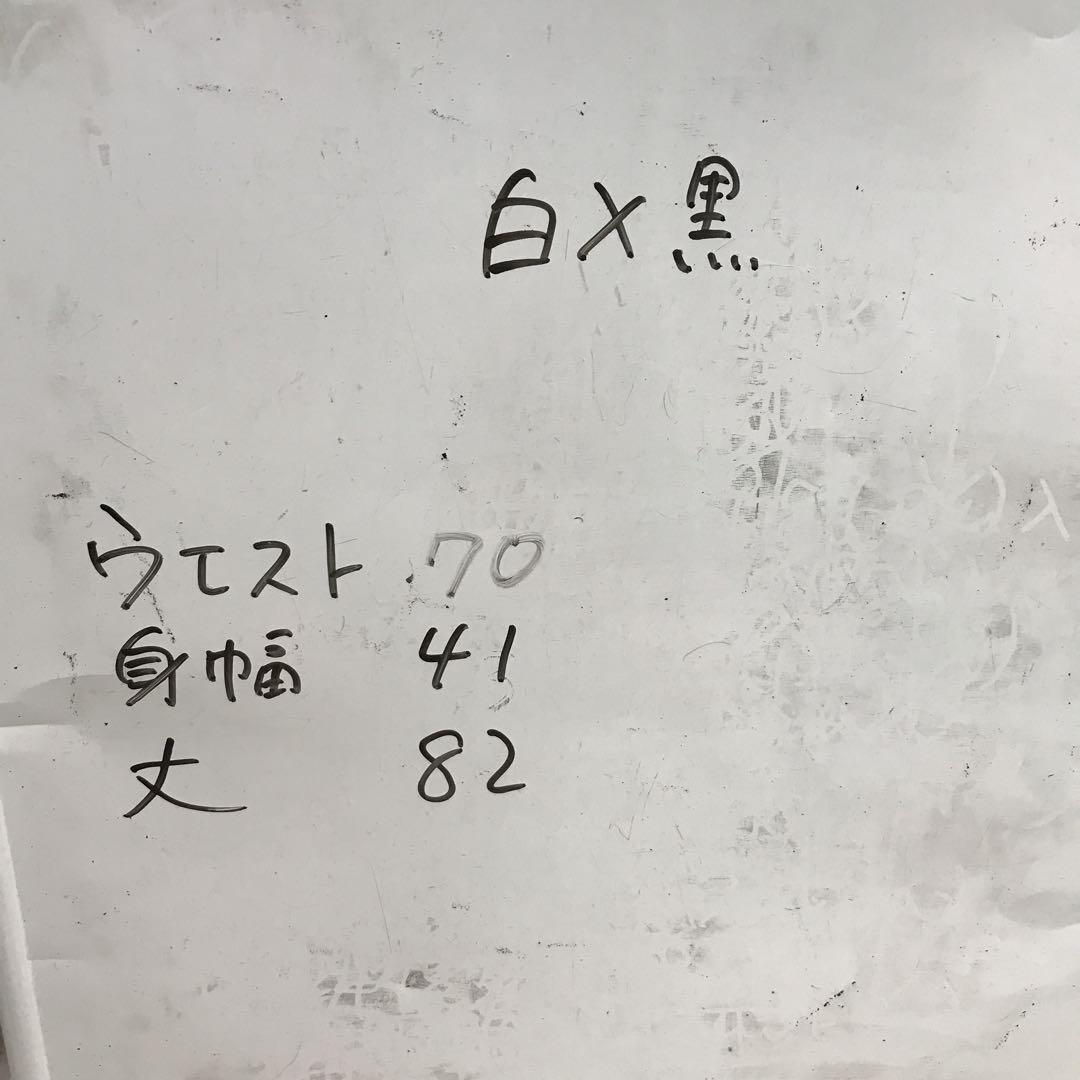 白×黒
ウエスト 70
身幅 41
丈 82